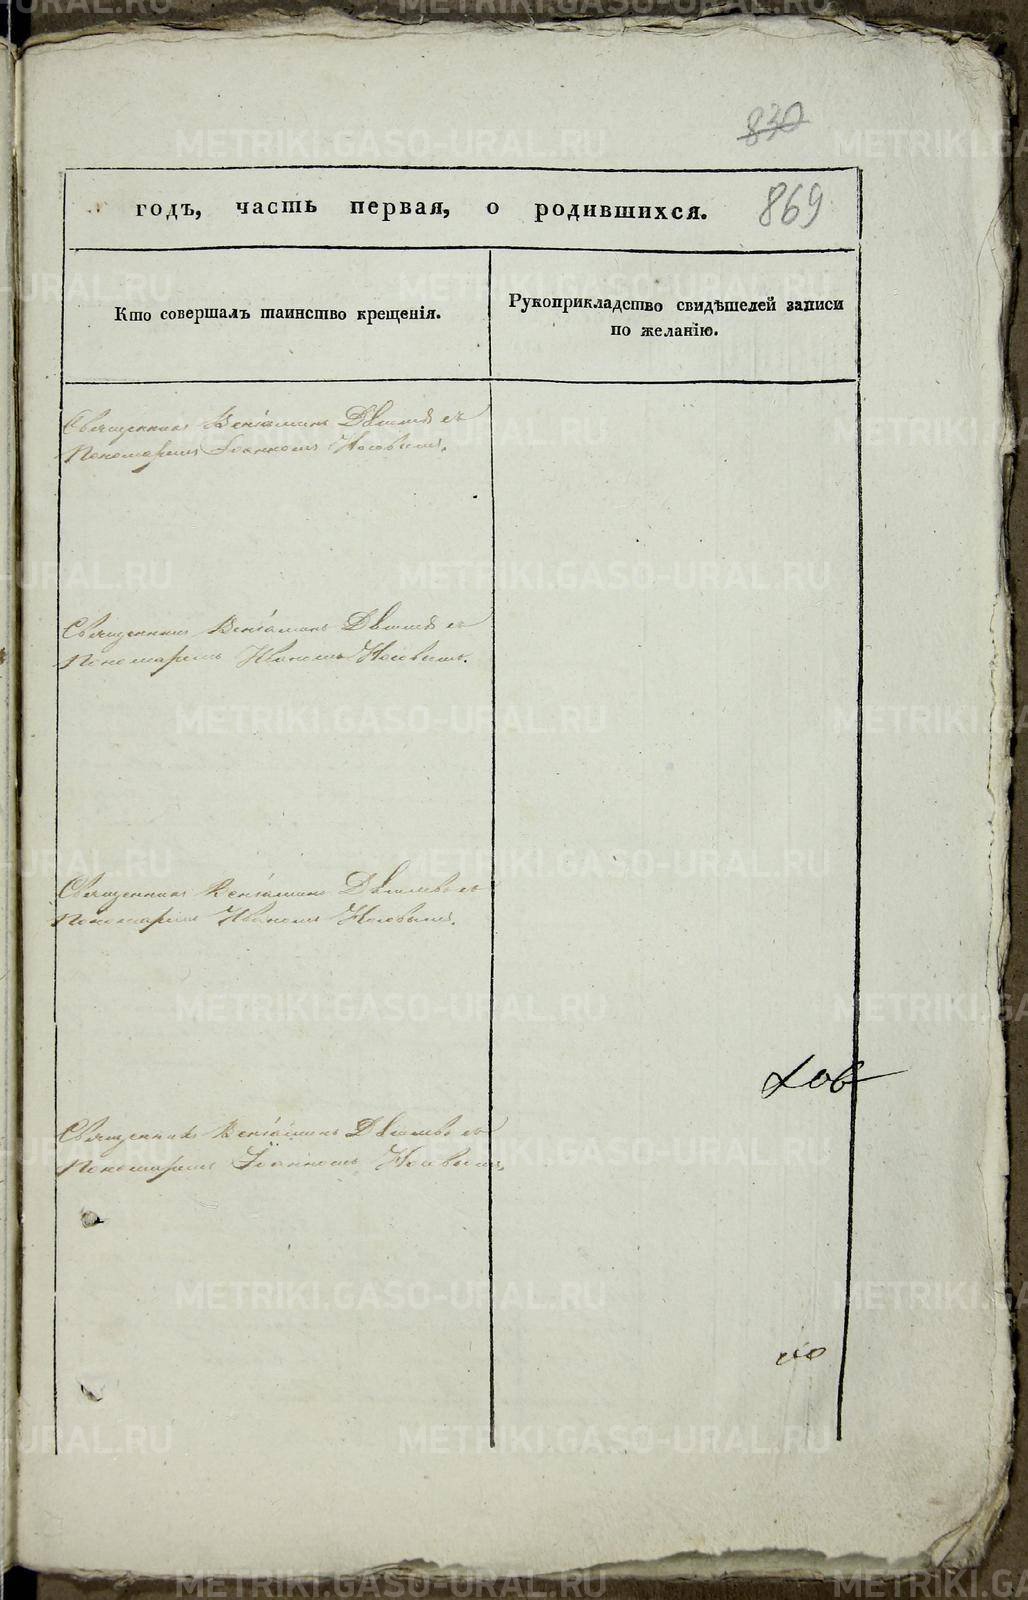 830
869
годъ, часть первая, о родившихся.
Кто совершалъ таинство крещенія.
Рукоприкладство свидѣтелей записи
по желанію.
Священникъ Веніаминъ съ
Пономаремъ Іоанномъ Носовымъ.
Священникъ Веніаминъ съ
Пономаремъ Иваномъ Носовымъ.
Священникъ Веніаминъ съ
Пономаремъ Иваномъ Носовымъ.
Священникъ Веніаминъ съ
Пономаремъ Іоанномъ Носовымъ.
METRIKI.GASO-URAL.RU